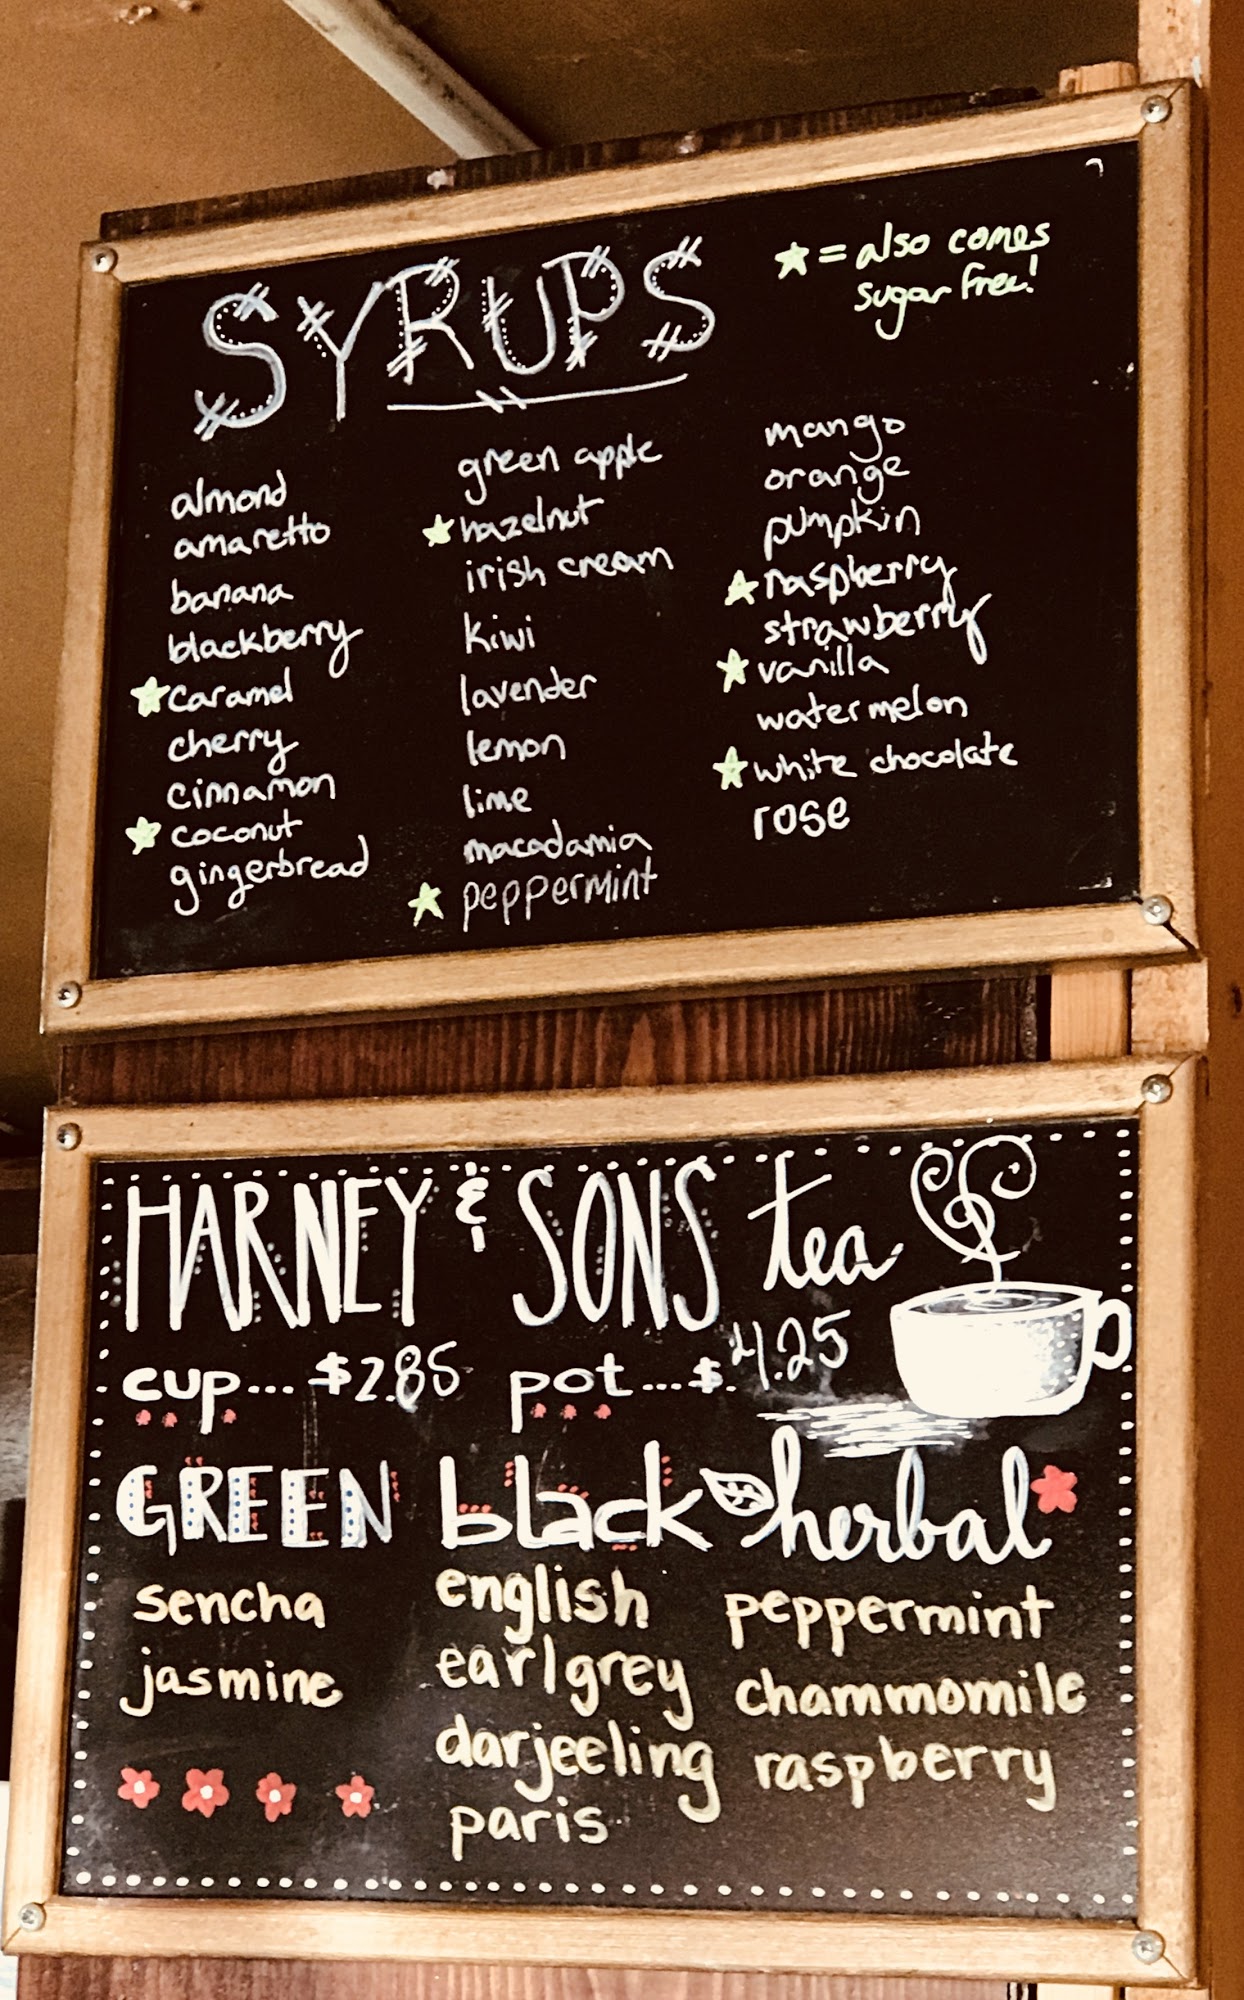 SYRUPS
★ = also comes
sugar free!
almond
amaretto
banana
blackberry
★ caramel
cherry
cinnamon
★ coconut
gingerbread
green apple
★ hazelnut
irish cream
kiwi
lavender
lemon
lime
macadamia
★ peppermint
mango
orange
pumpkin
★ raspberry
strawberry
★ vanilla
watermelon
★ white chocolate
rose
HARNEY & SONS tea
cup... $2.85 pot...$.4.25
GREEN
sencha
jasmine
black
english
earl grey
darjeeling
paris
herbal
peppermint
chammomile
raspberry